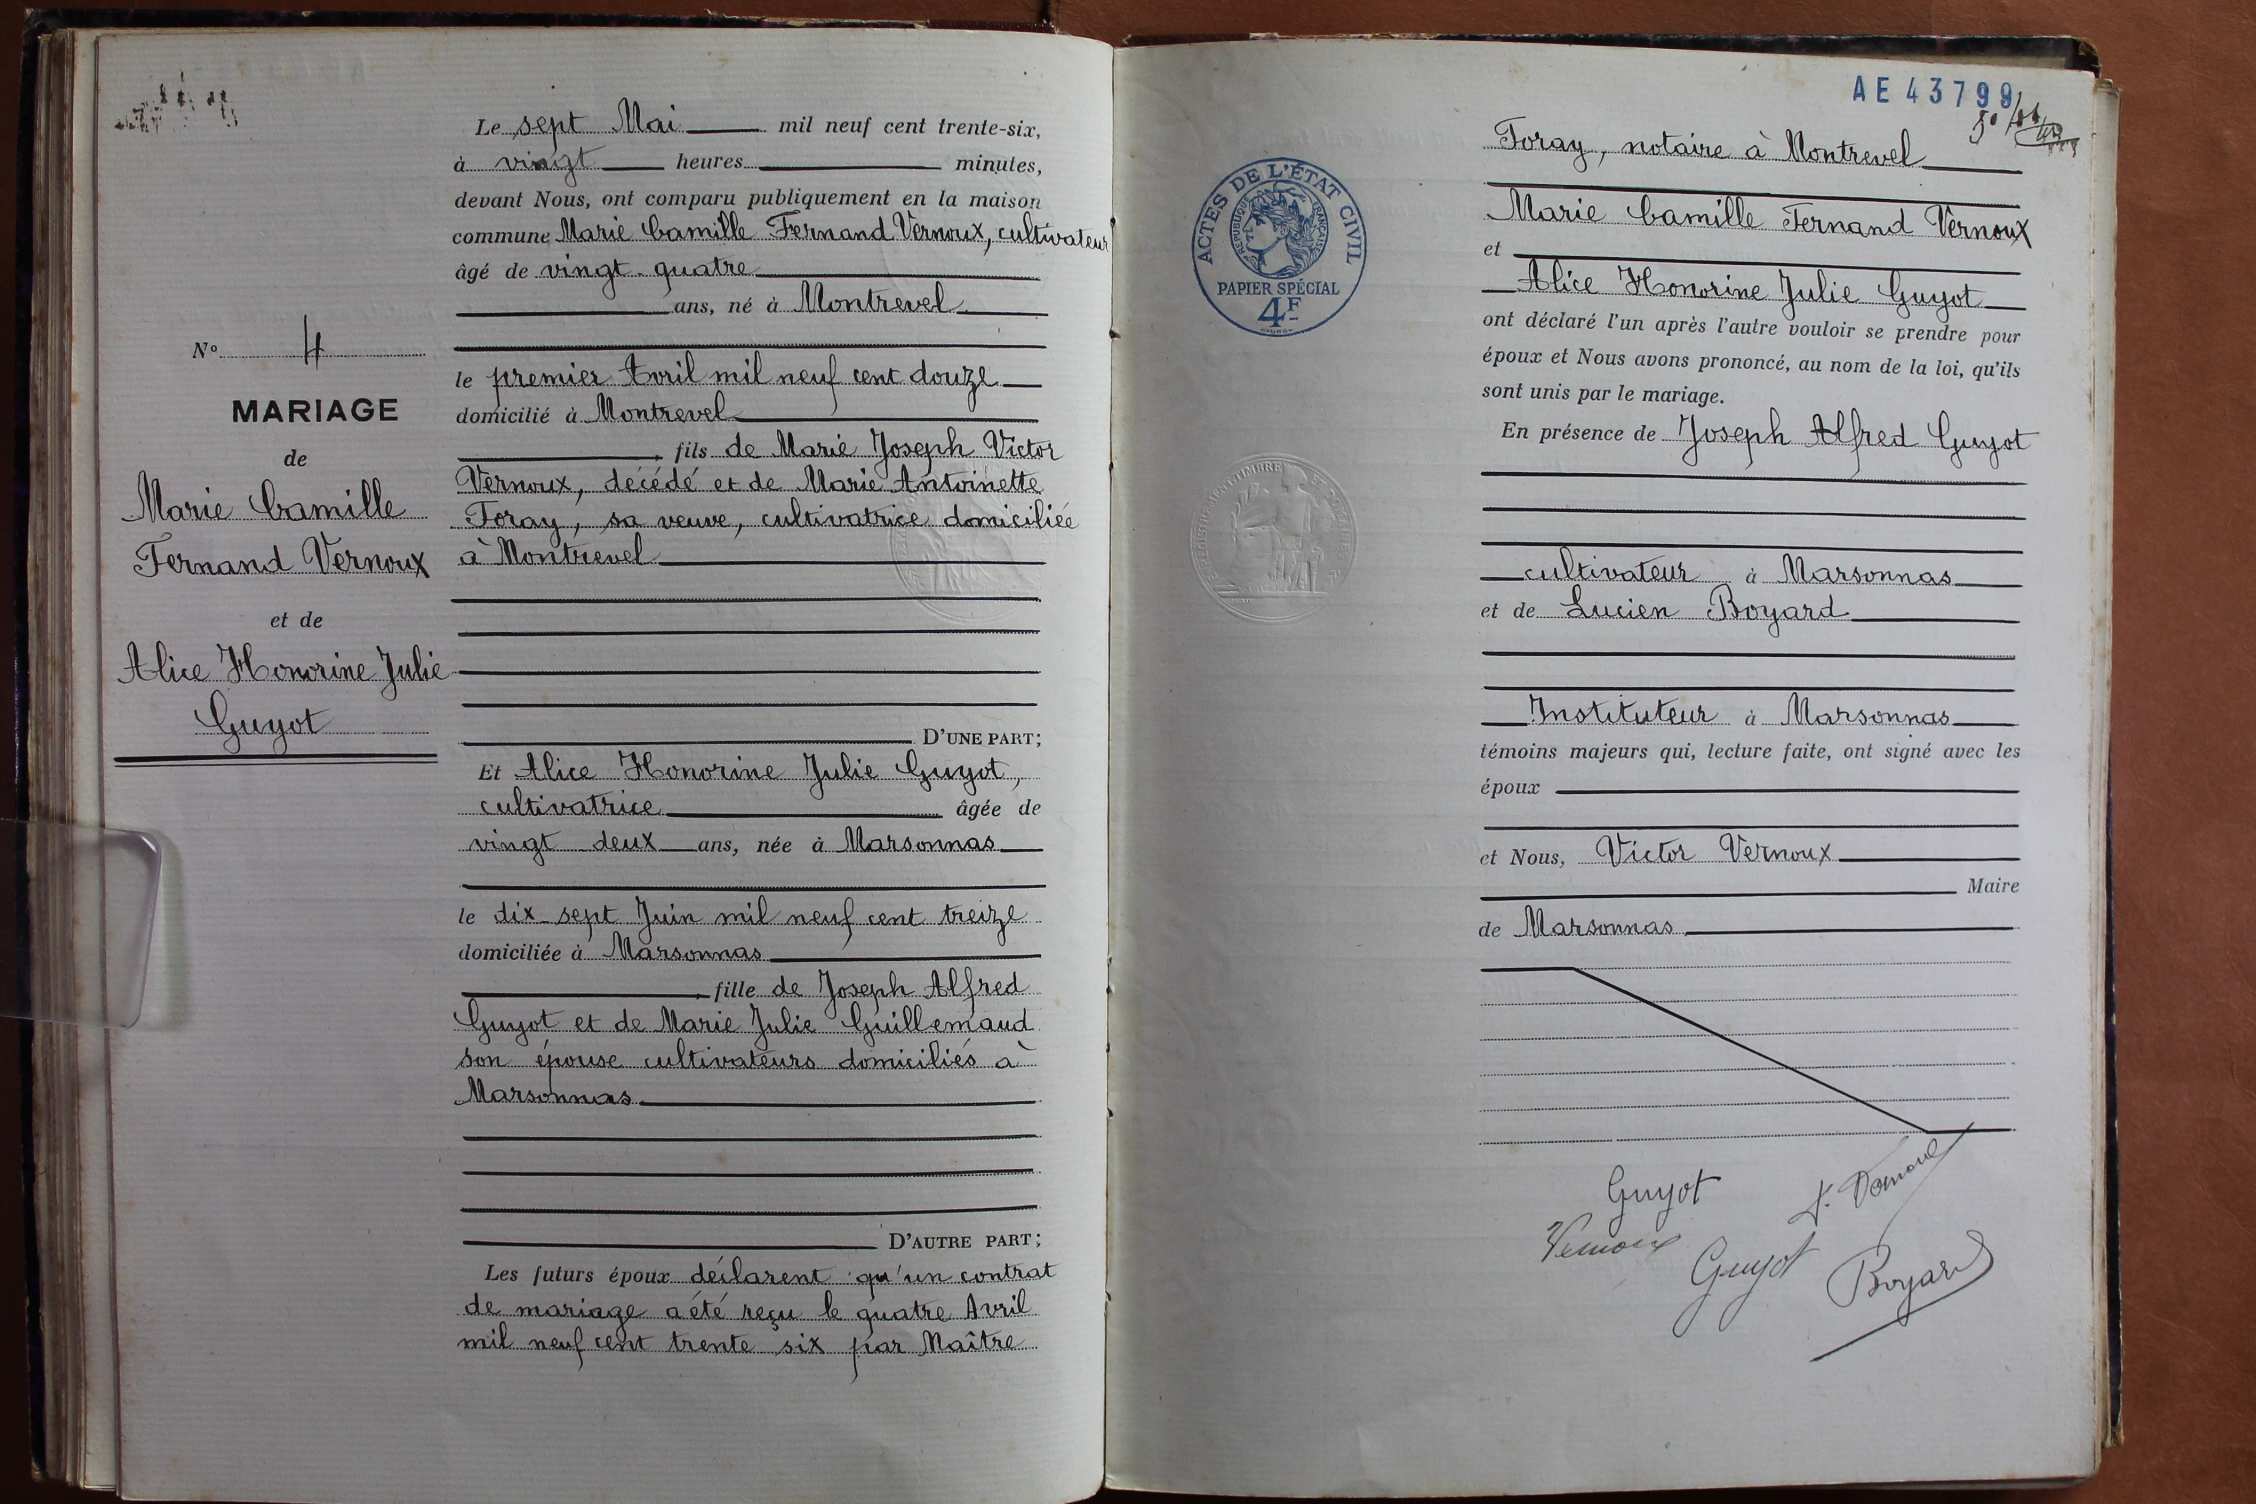 Le sept Mai mil neuf cent trente-six,
à vingt heures minutes,
devant Nous, ont comparu publiquement en la maison
commune Marie Camille Fernand Vernoux, cultivateur
âgé de vingt-quatre
ans, né à Montrevel
le premier Avril mil neuf cent douze
domicilié à Montrevel
, fils de Marie Joseph Victor
Vernoux, décédé et de Marie Antoinette
Foray, sa veuve, cultivatrice domiciliée
à Montrevel
D'UNE PART;
Et Alice Honorine Julie Guyot,
cultivatrice âgée de
vingt deux ans, née à Marsonnas
le dix-sept Juin mil neuf cent treize
domiciliée à Marsonnas
, fille de Joseph Alfred
Guyot et de Marie Julie Guillemaud
son épouse cultivateurs domiciliés à
Marsonnas
D'AUTRE PART;
Les futurs époux déclarent qu'un contrat
de mariage a été reçu le quatre Avril
mil neuf cent trente six par Maître
No 4
MARIAGE
de
Marie Camille
Fernand Vernoux
et de
Alice Honorine Julie
Guyot
AE 43799
ACTES DE L'ÉTAT CIVIL
RÉPUBLIQUE FRANÇAISE
PAPIER SPÉCIAL
4F
Foray, notaire à Montrevel
Marie Camille Fernand Vernoux
et
Alice Honorine Julie Guyot
ont déclaré l'un après l'autre vouloir se prendre pour
époux et Nous avons prononcé, au nom de la loi, qu'ils
sont unis par le mariage.
En présence de Joseph Alfred Guyot
cultivateur à Marsonnas
et de Lucien Boyard
Instituteur à Marsonnas
témoins majeurs qui, lecture faite, ont signé avec les
époux
et Nous, Victor Vernoux
Maire
de Marsonnas
Guyot
V. Vernoux
Vernoux
Guyot
Boyard